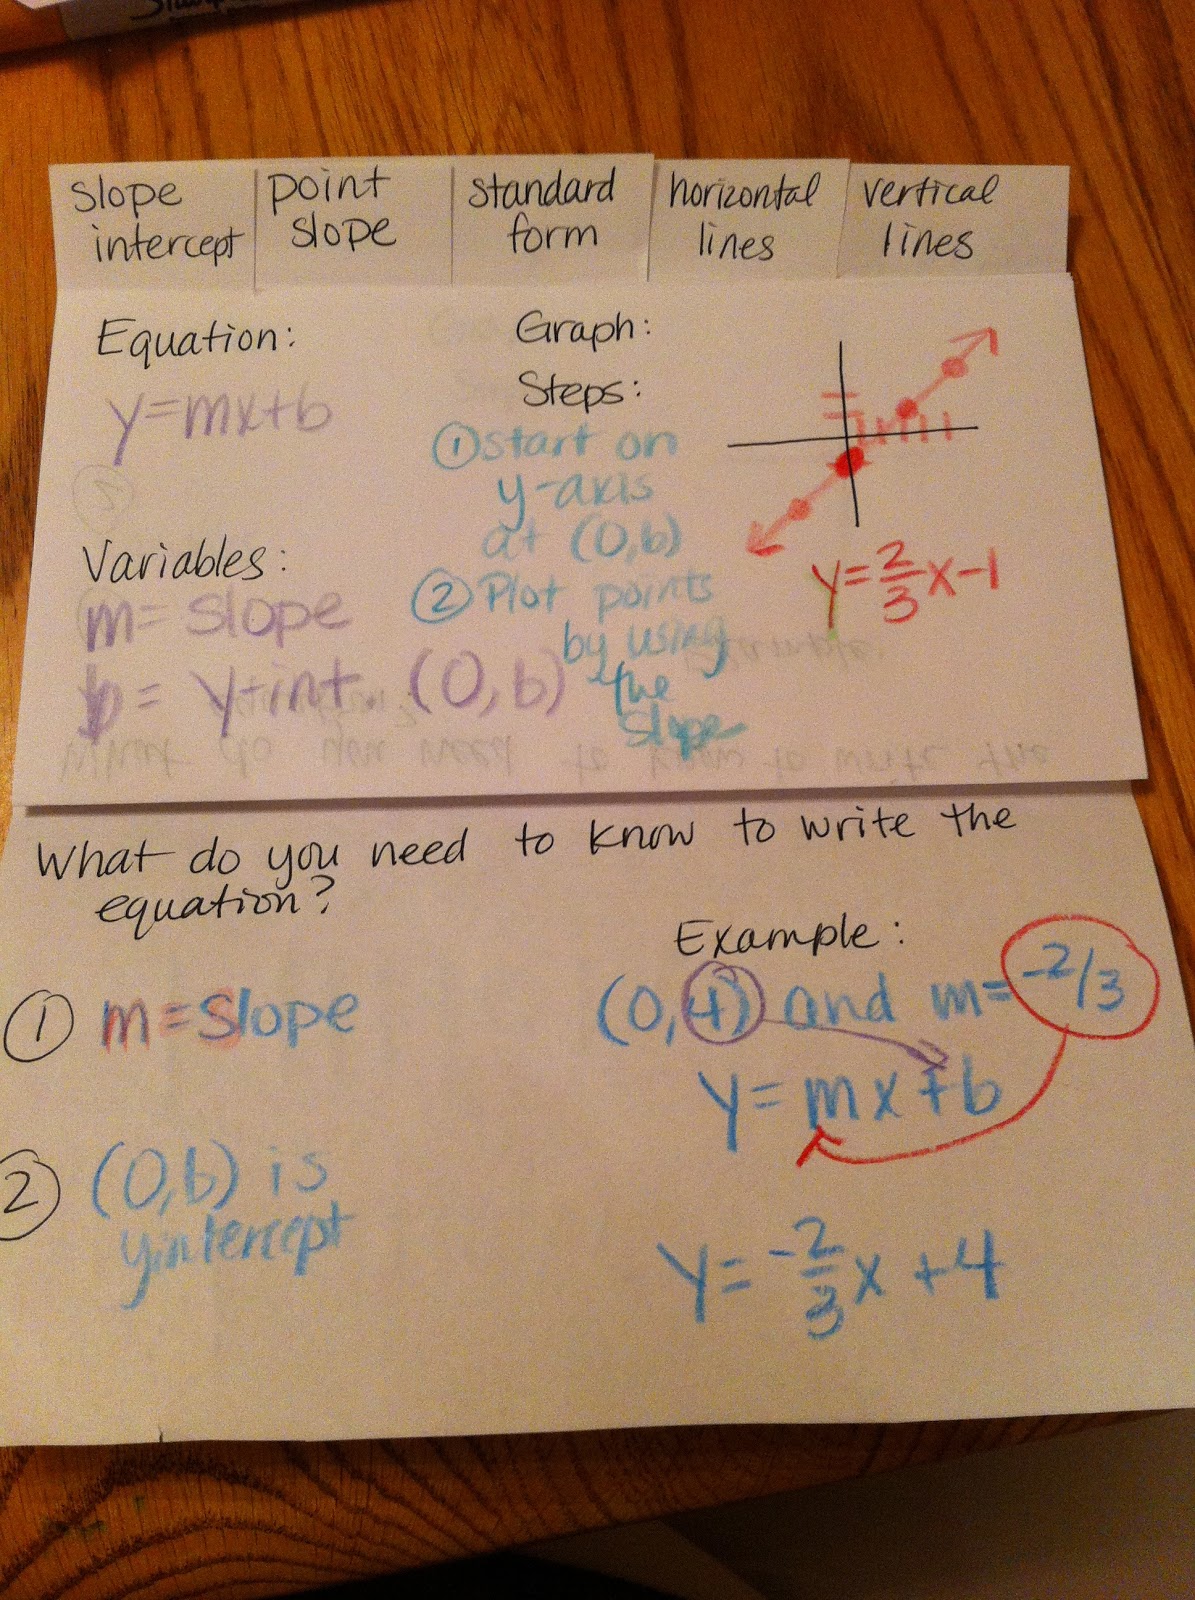 slope
intercept
point
slope
standard
form
horizontal
lines
vertical
lines
Equation:
y=mx+b
Variables:
m= slope
b= y-int. (0,b)
Graph:
Steps:
① start on
y-axis
at (0,b)
② Plot points
by using
the
slope
y=2/3x-1
What do you need to know to write the
equation?
① m=slope
② (0,b) is
y-intercept
Example:
(0,4) and m=-2/3
y=mx+b
y=-2/3x+4